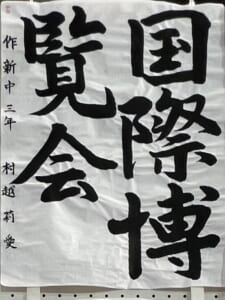 国際博
覧会
作新中三年 村越莉愛